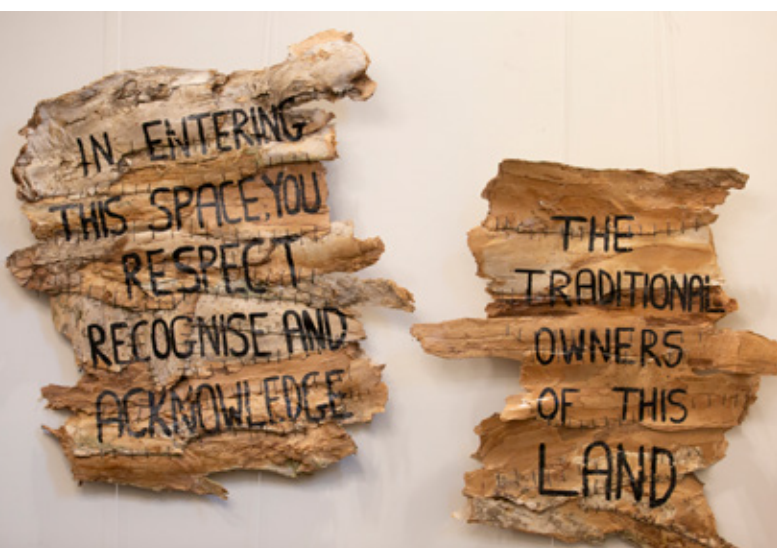 IN ENTERING
THIS SPACE, YOU
RESPECT
RECOGNISE AND
ACKNOWLEDGE
THE
TRADITIONAL
OWNERS
OF THIS
LAND